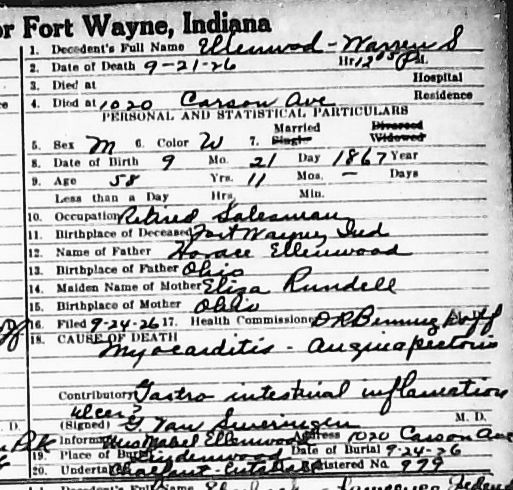 or Fort Wayne, Indiana
1. Decedent's Full Name Ellenwood - Warren S
2. Date of Death 9-21-26 Hr. 12 05 P M.
3. Died at Hospital
4. Died at 1020 Carson Ave Residence
PERSONAL AND STATISTICAL PARTICULARS
5. Sex M 6. Color W 7. Married Single Divorced Widowed
8. Date of Birth 9 Mo. 21 Day 1867 Year
9. Age 58 Yrs. 11 Mos. — Days
Less than a Day Hrs. Min.
10. Occupation Retired Salesman
11. Birthplace of Deceased Fort Wayne, Ind
12. Name of Father Horace Ellenwood
13. Birthplace of Father Ohio
14. Maiden Name of Mother Eliza Rundell
15. Birthplace of Mother Ohio
16. Filed 9-24-26 17. Health Commissioner
18. CAUSE OF DEATH
Myocarditis - Angina pectoris
Contributory Gastro intestinal inflamation
ulcer?
(Signed) G. Van Sweringen M. D.
Informant Mrs Mabel Ellenwood Address 1020 Carson Ave
19. Place of Burial Lindenwood Date of Burial 9-24-26
20. Undertaker Registered No. 979
Decedent's Full Name